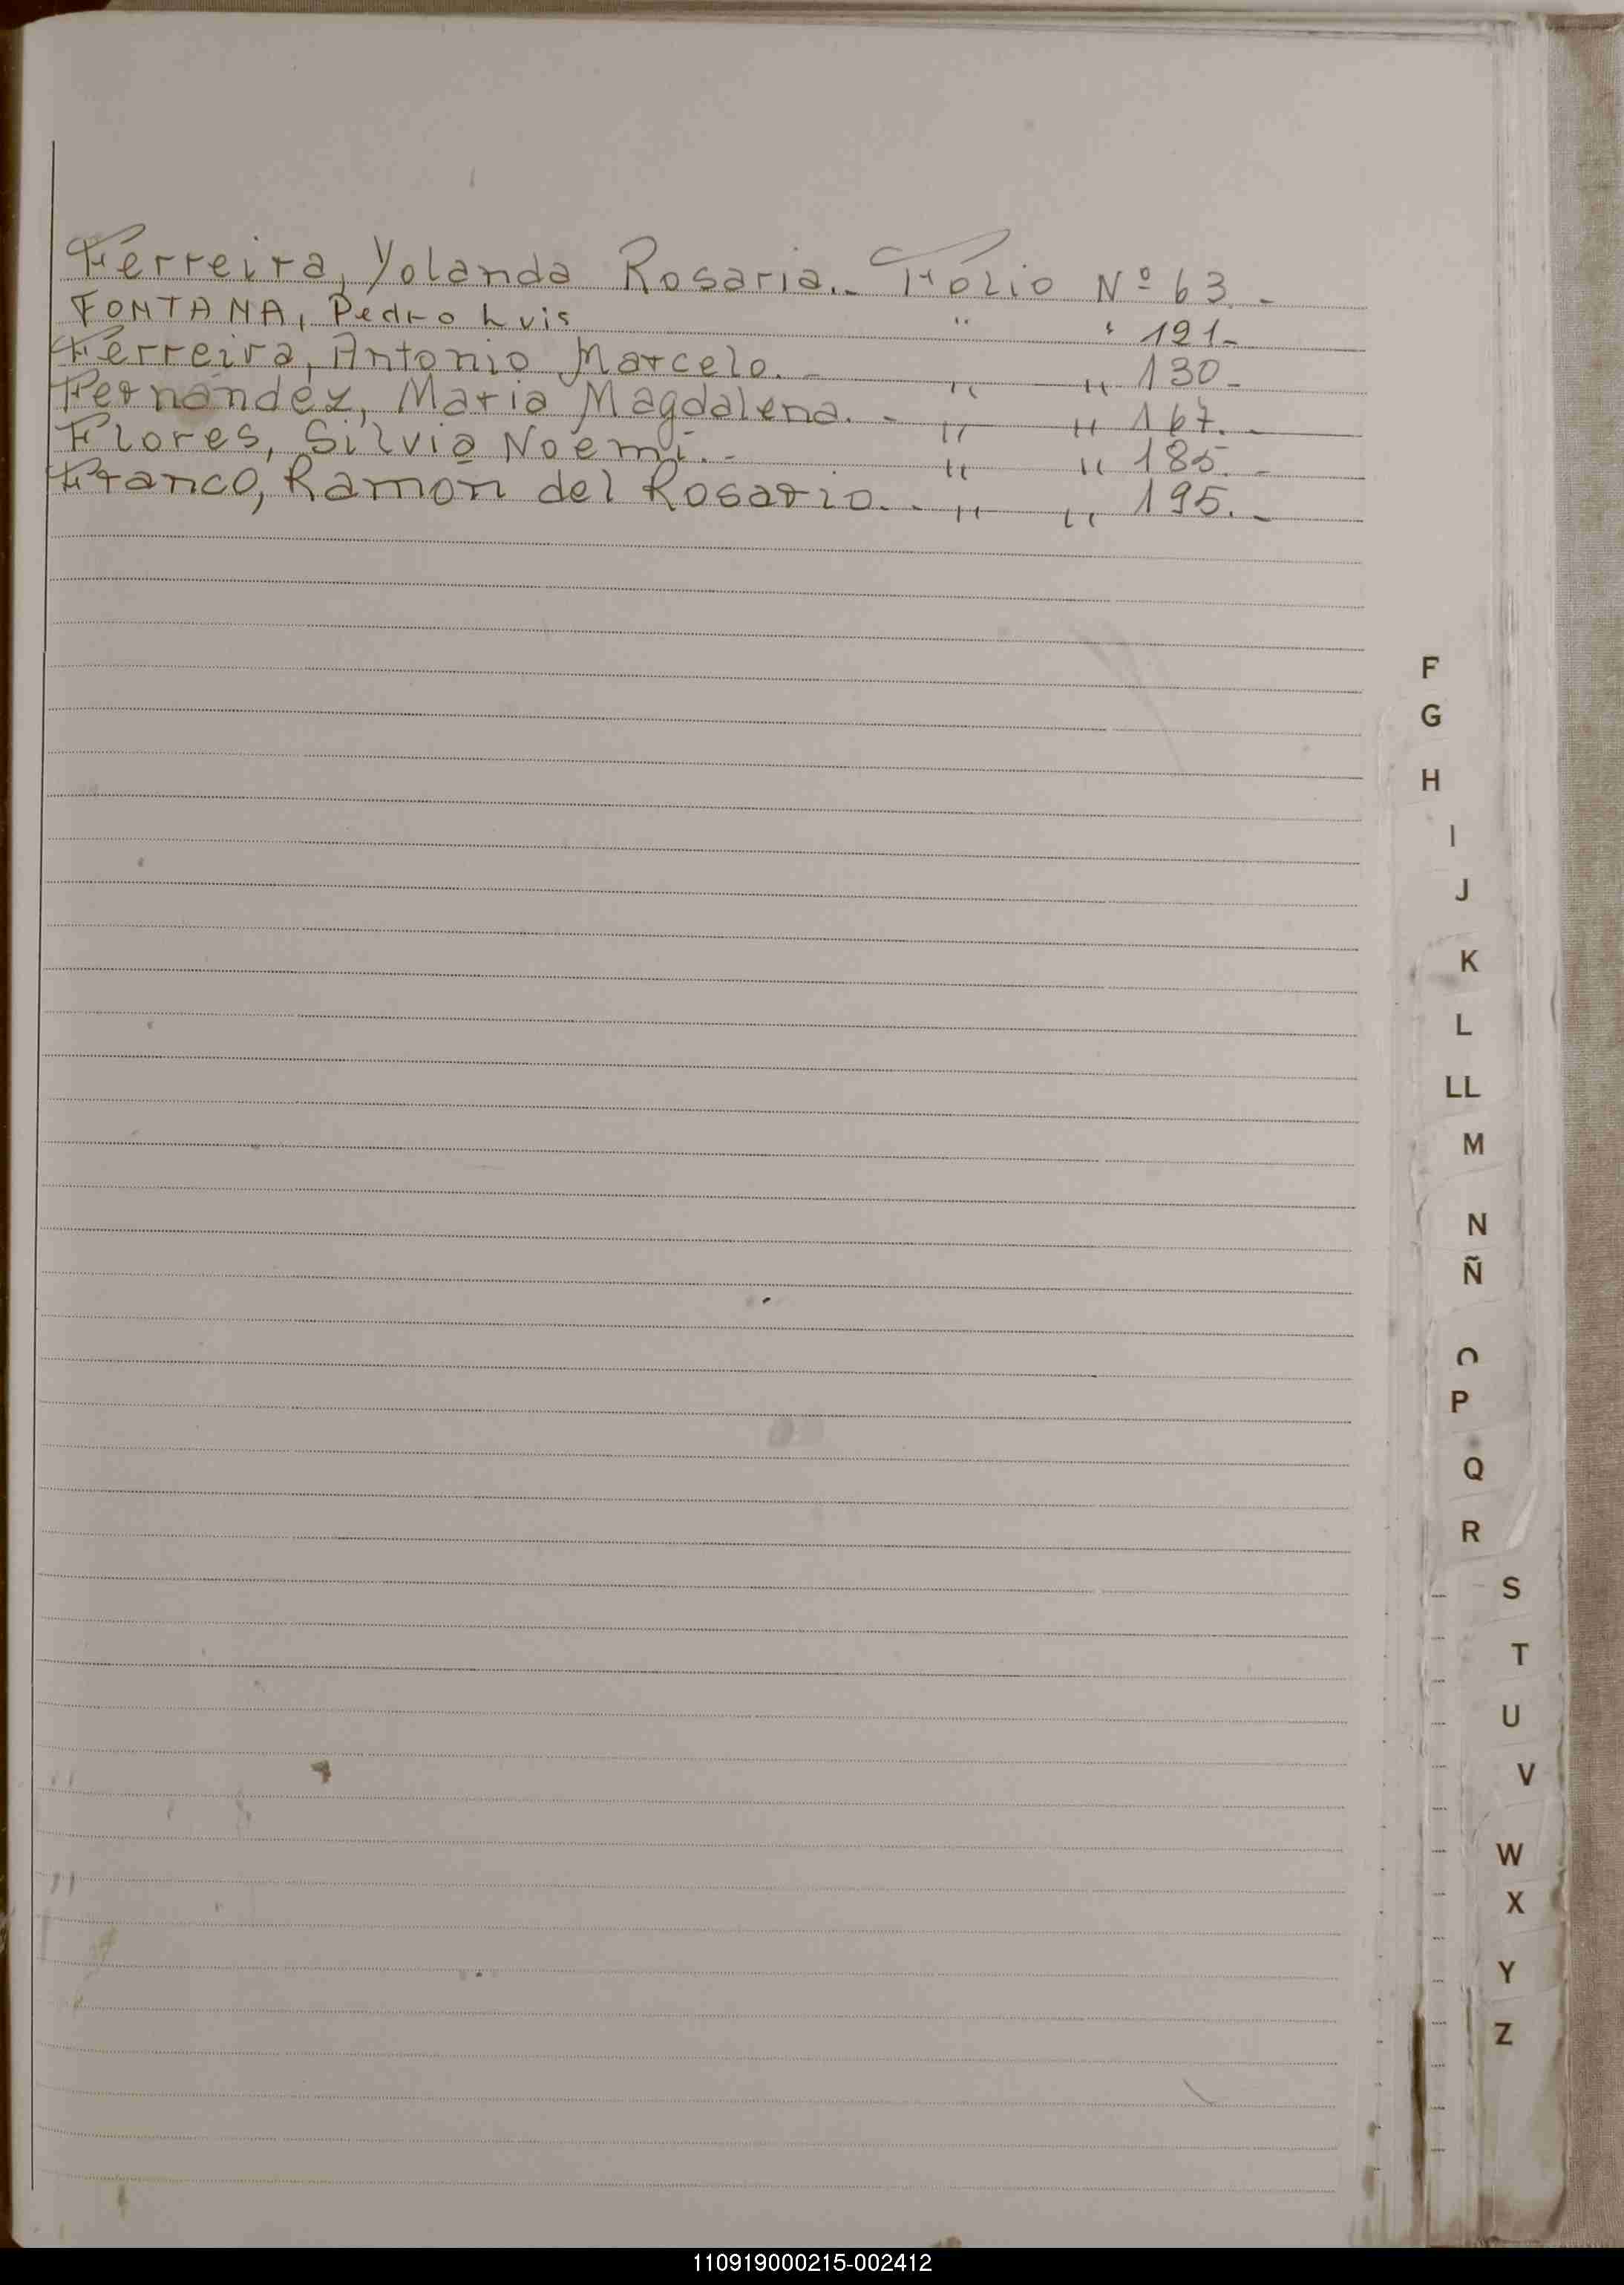 Ferreira, Yolanda Rosaria.- Folio Nº 63.-
FONTANA, Pedro Luis " " 121-
Ferreira, Antonio Marcelo.- " " 130-
Fernández, María Magdalena.- " " 167.-
Flores, Silvia Noemí.- " " 185.-
Franco, Ramon del Rosario.- " " 195.-
F
G
H
I
J
K
L
LL
M
N
Ñ
O
P
Q
R
S
T
U
V
W
X
Y
Z
110919000215-002412